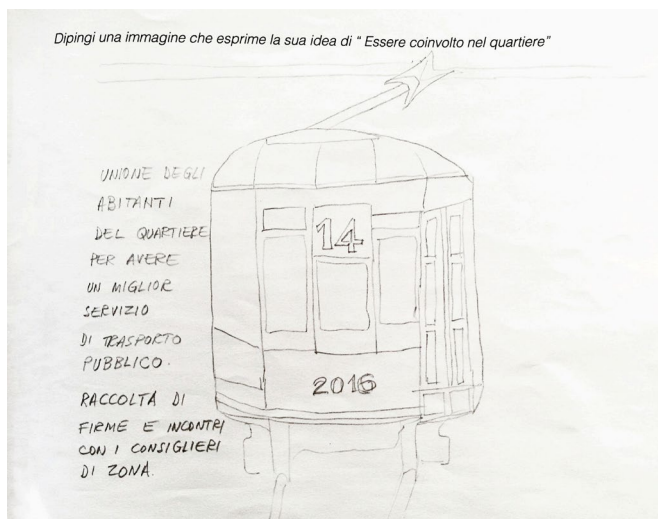 Dipingi una immagine che esprime la sua idea di “ Essere coinvolto nel quartiere”
UNIONE DEGLI
ABITANTI
DEL QUARTIERE
PER AVERE
UN MIGLIOR
SERVIZIO
DI TRASPORTO
PUBBLICO.
RACCOLTA DI
FIRME E INCONTRI
CON I CONSIGLIERI
DI ZONA.
14
2016